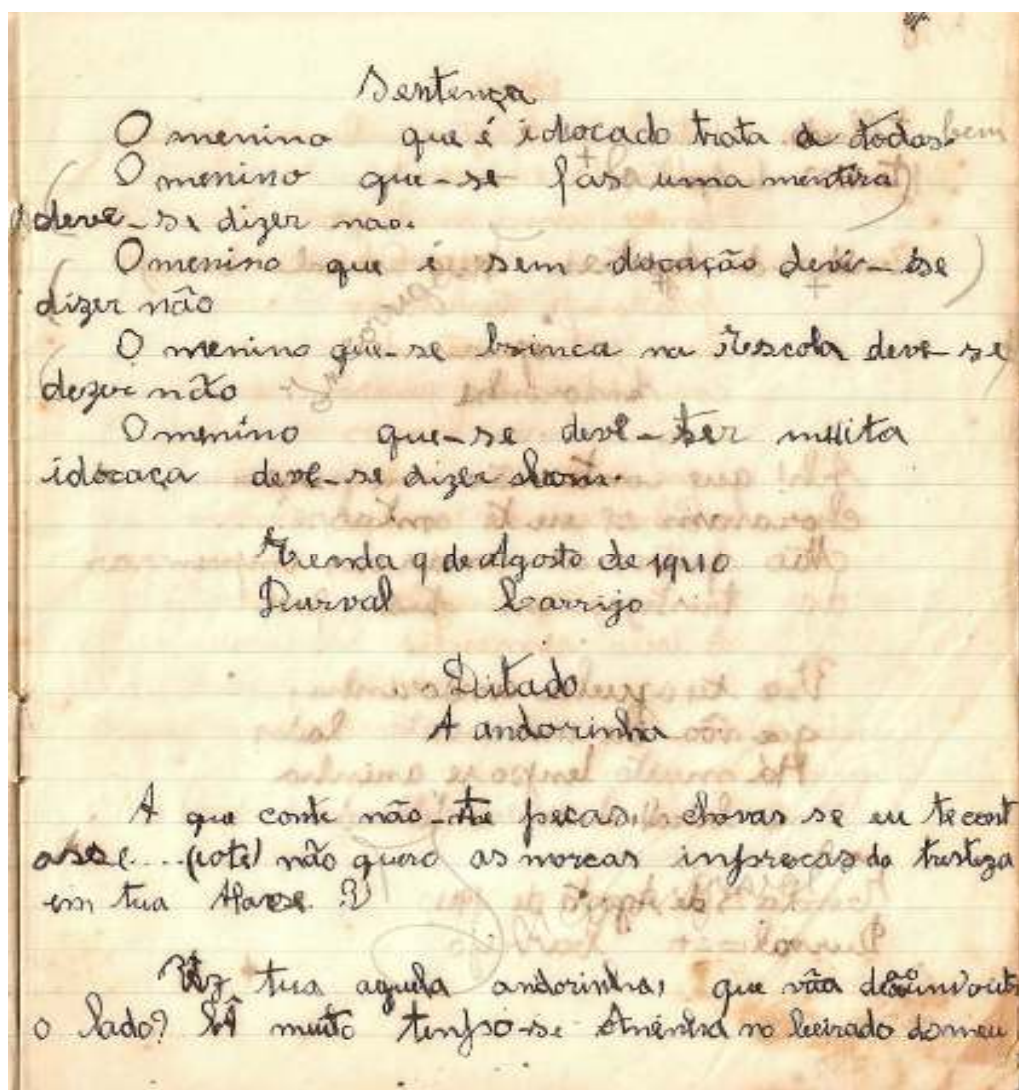 Sentença
O menino que é idocado trata a todos bem
O menino que-se fas uma mentira
deve-se dizer nao.
O menino que é sem docação devi-se
dizer não
O menino que-se brinca na escola deve-se
dezer não
O menino que-se deve-ter muita
idocaça deve-se dizer
9 de Agosto de 1940
Durval Carrijo
Ditado
A andorinha
A que conte não-te pecas, choras se eu te cont
asse... não quero as marcas imprecas da tristeza
em tua
tua aquela andorinha, que vôa
o lado? Hâ muito tempo-se aninha no beirado do meu